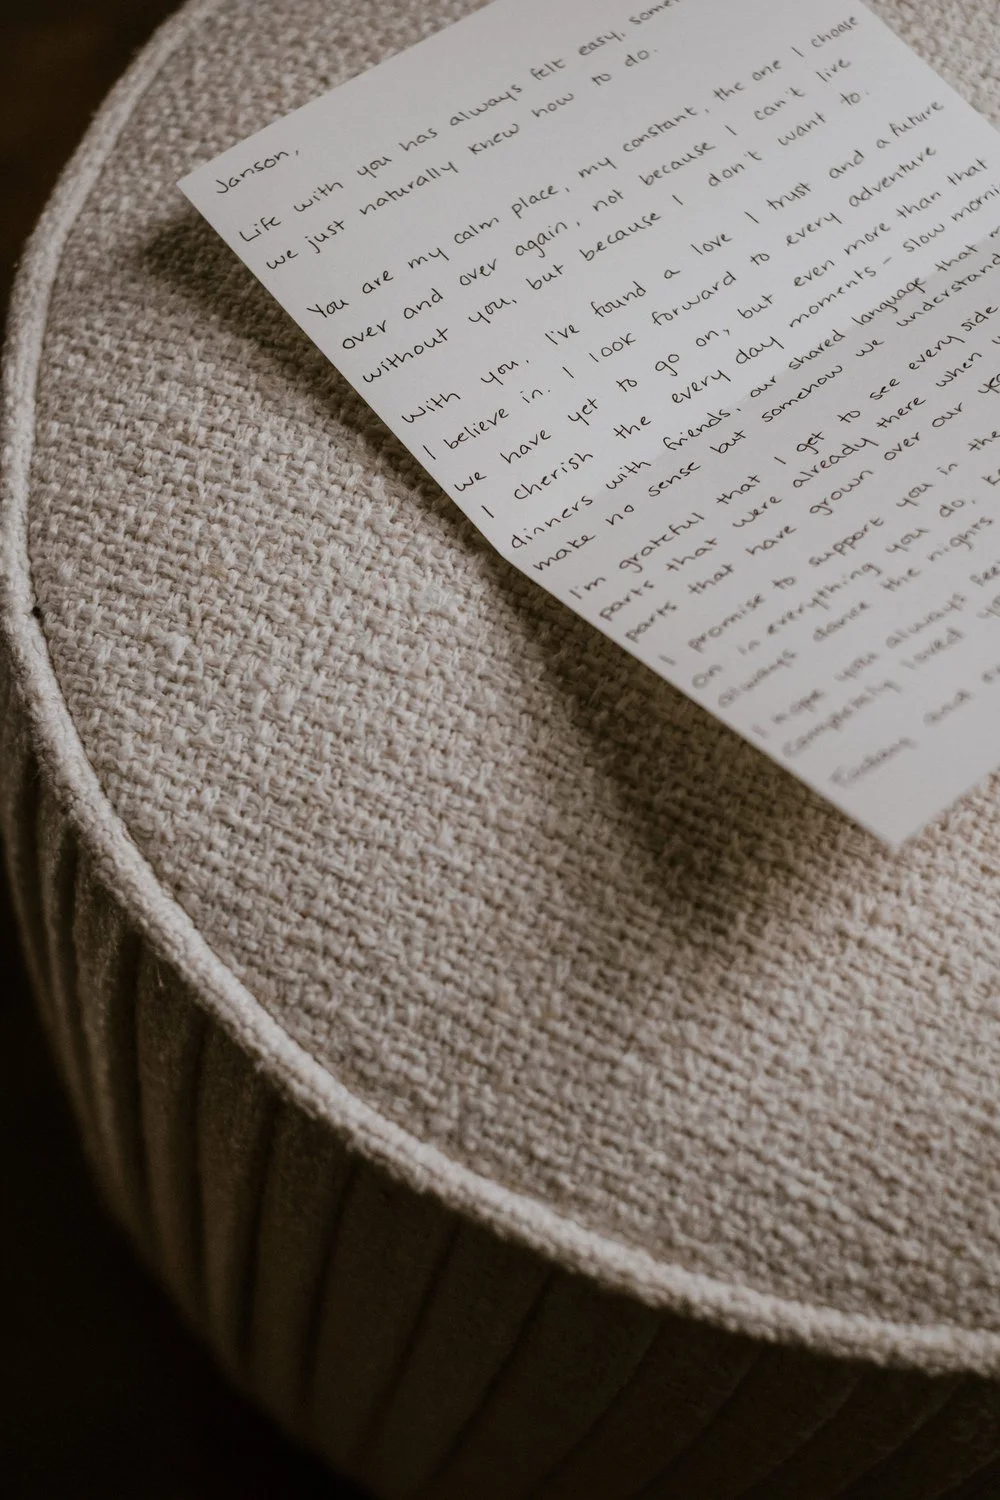 Janson,
Life with you has always felt easy,
we just naturally knew how to do.
You are my calm place, my constant, the one I choose
over and over again, not because I can't live
without you, but because I don't want to.
With you, I've found a love I trust and a future
I believe in. I look forward to every adventure
we have yet to go on, but even more than that
I cherish the every day moments - slow
dinners with friends, our shared language that
make no sense but somehow we understand
I'm grateful that I get to see every side
parts that were already there when
parts that have grown over our
I promise to support you in the
on in everything you do,
always dance the nights
I hope you always feel
completely loved
and